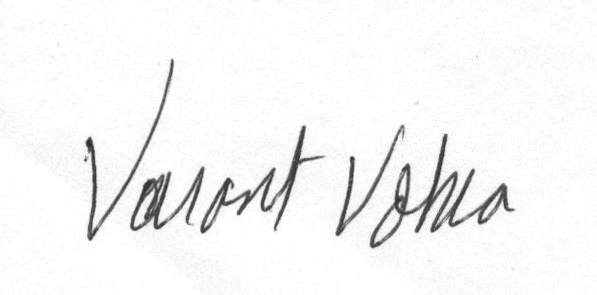 Vasant Vohra